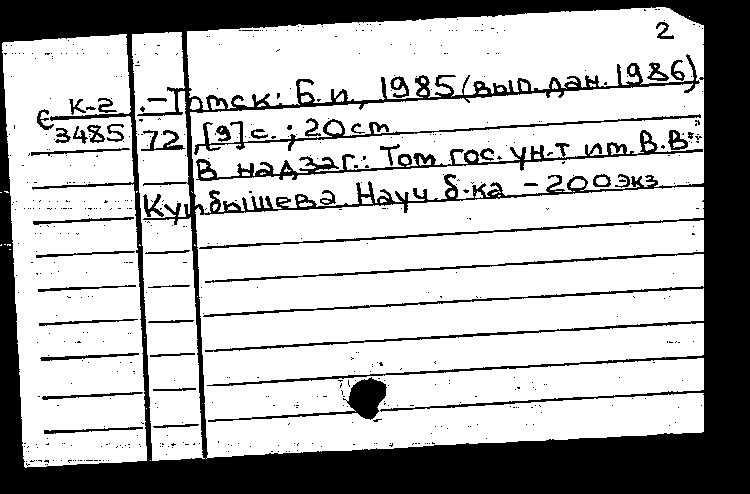 2
Є К-2 .-Томск: Б.и., 1985 (вып.дан.1986).
3485 72,[9]с.; 20см
В надзаг.: Том. гос. ун-т им. В.В.
Куйбышева. Науч. б-ка - 200экз